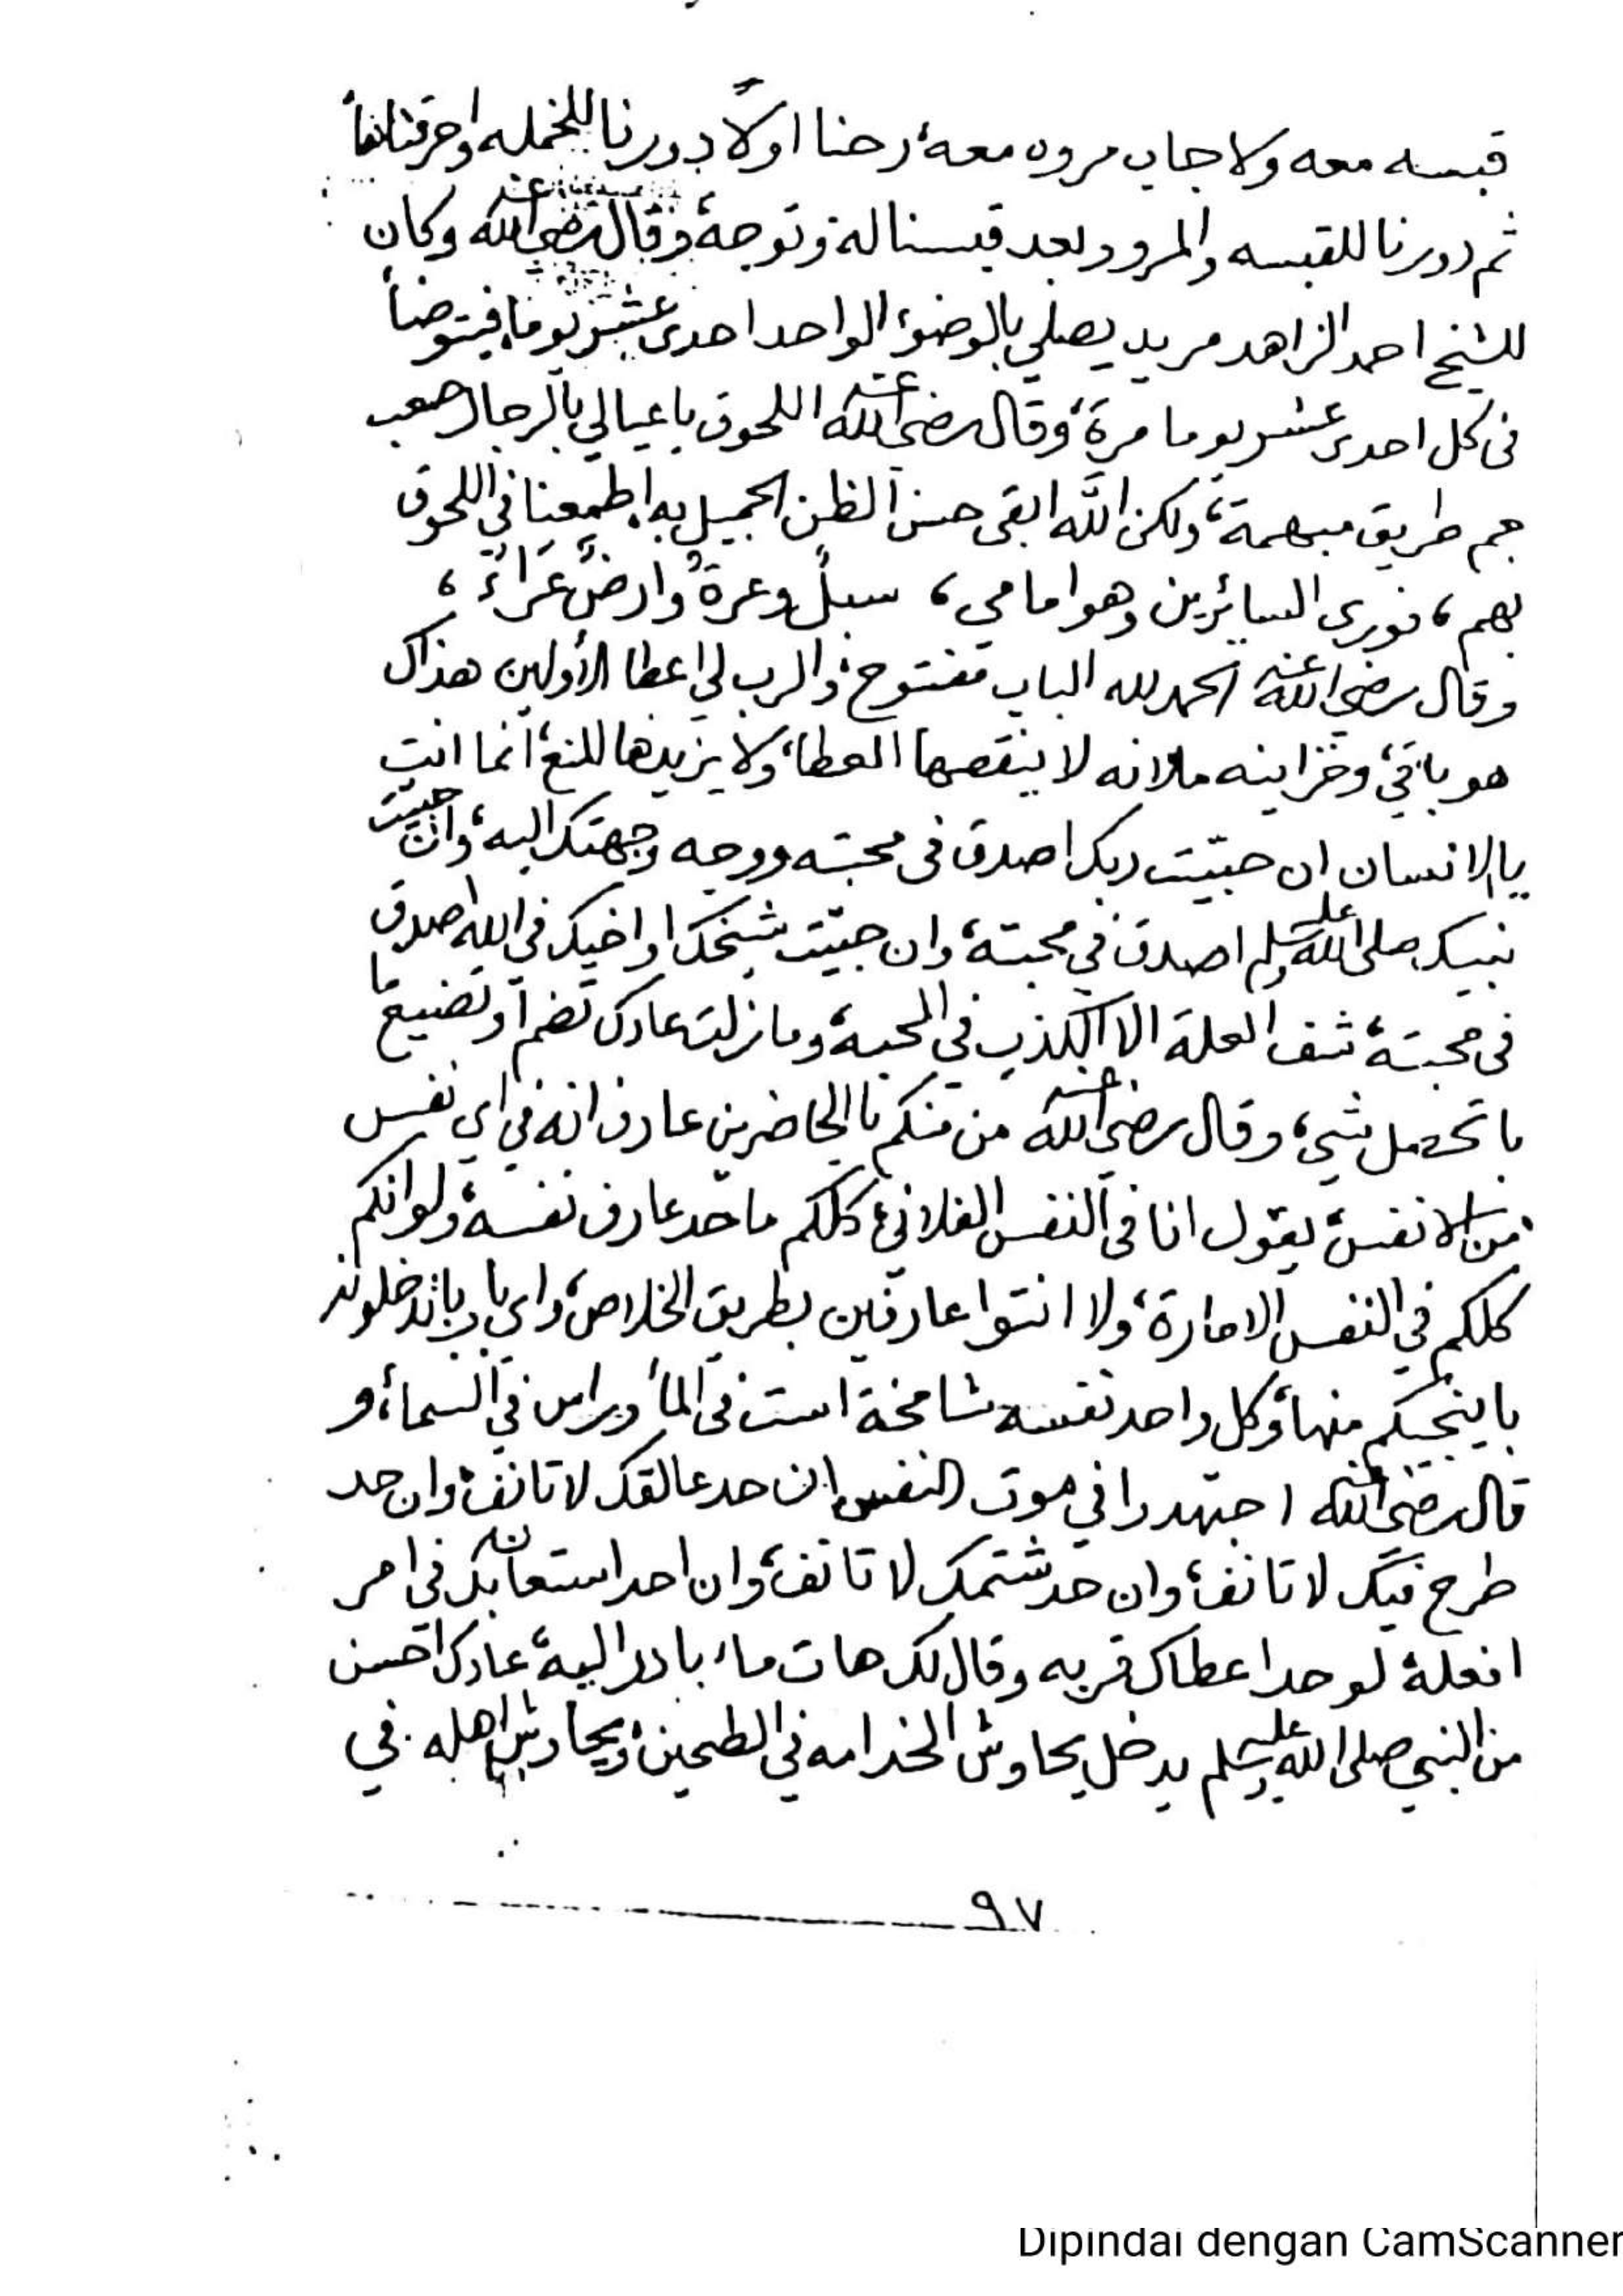 قبسه معه ولا جاب مروه معهٔ رحنا اولاً دورنا للخمله وحرقناها
ثم دورنا للقبسه والمرود بعد قبسنا له وتوجه وقال رضي الله عنه وكان
للشيخ احمد الزاهد مريد يصلي بالوضوء الواحد احدى عشر يوما فيتوضأ
فى كل احدى عشر يوما مرة، وقال رضي الله عنه اللحوق يا عيالي بالرجال صعب
جم طريق مبهمة، ولكن الله ابقى حسن الظن الجميل به اطمعنا في اللحوق
بهم، فورى السائرين وهو امامي، سبلٌ وعرةٌ وارضٌ عَراءٌ،
وقال رضي الله عنه الحمد لله الباب مفتوح، والرب لي اعطا الأولين هذاك
هو باقي، وخزاينه ملانه لا ينقصها العطا، ولا يزيدها المنع، انما انت
يا الانسان ان حبّيت ربك اصدق فى محبته ووجه وجهتك اليه، وان حبيت
نبيك صلى الله عليه وسلم اصدق في محبته، وان حبّيت شيخك او اخيك في الله اصدق
فى محبته، شف العلة الا الكذب في المحبه، وما زلت عادك تضم او تضيع ما
با تحصل شي، وقال رضي الله عنه من منكم يا الحاضرين عارف انه في اي نفس
من الانفس، يقول انا فى النفس الفلاني، كلكم ما حد عارف نفسه، ولو انكم
كلكم في النفس الامارة، ولا انتوا عارفين بطريق الخلاص، واي باب باتدخلون
باينجيكم منها، وكل واحد نفسه شامخة است فى الما، وراس في السماء، و
قال رضي الله عنه اجتهدوا في موت النفس، ان حد عالقك لا تانف، وان حد
طرح فيك لا تانف، وان حد شتمك لا تانف، وان احد استعان بك في امر
افعله، لو حد اعطاك قربه وقال لك هات ماء بادر اليه، عادك احسن
من النبي صلى الله عليه وسلم يدخل يحاوش الخدامه في الطحين، ويحاوش اهله في
٩٧
Dipindai dengan CamScanner